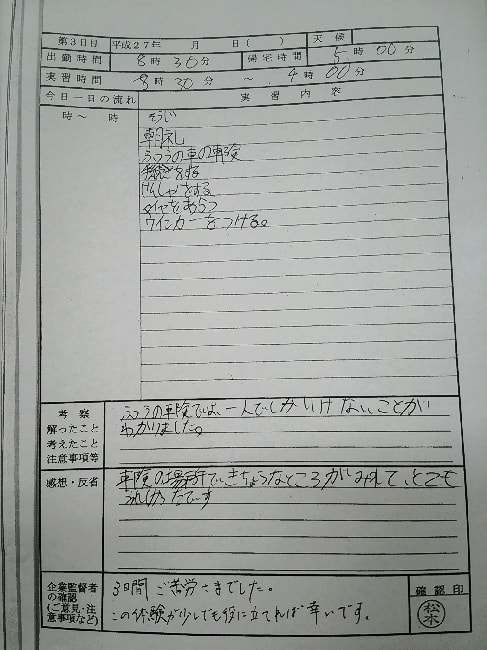 第3日目 平成27年 月 日( ) 天候
出勤時間 8時30分 帰宅時間 5時00分
実習時間 8時30分 ～ 4時00分
今日一日の流れ 実習内容
時～ 時 そうじ
朝礼
ふつうの車の車検
をする
けんしゃをする
タイヤをあらう
ウインカーをつける。
考察
解ったこと
考えたこと
注意事項等
ふつうの車検では、一人でしかいけないことが
わかりました。
感想・反省
車検の場所できちょうなところがみれて、とても
うれしかったです
企業監督者
の確認
(ご意見・注
意事項など)
3日間ご苦労さまでした。
この体験が少しでも役に立てれば幸いです。
確認印
松本